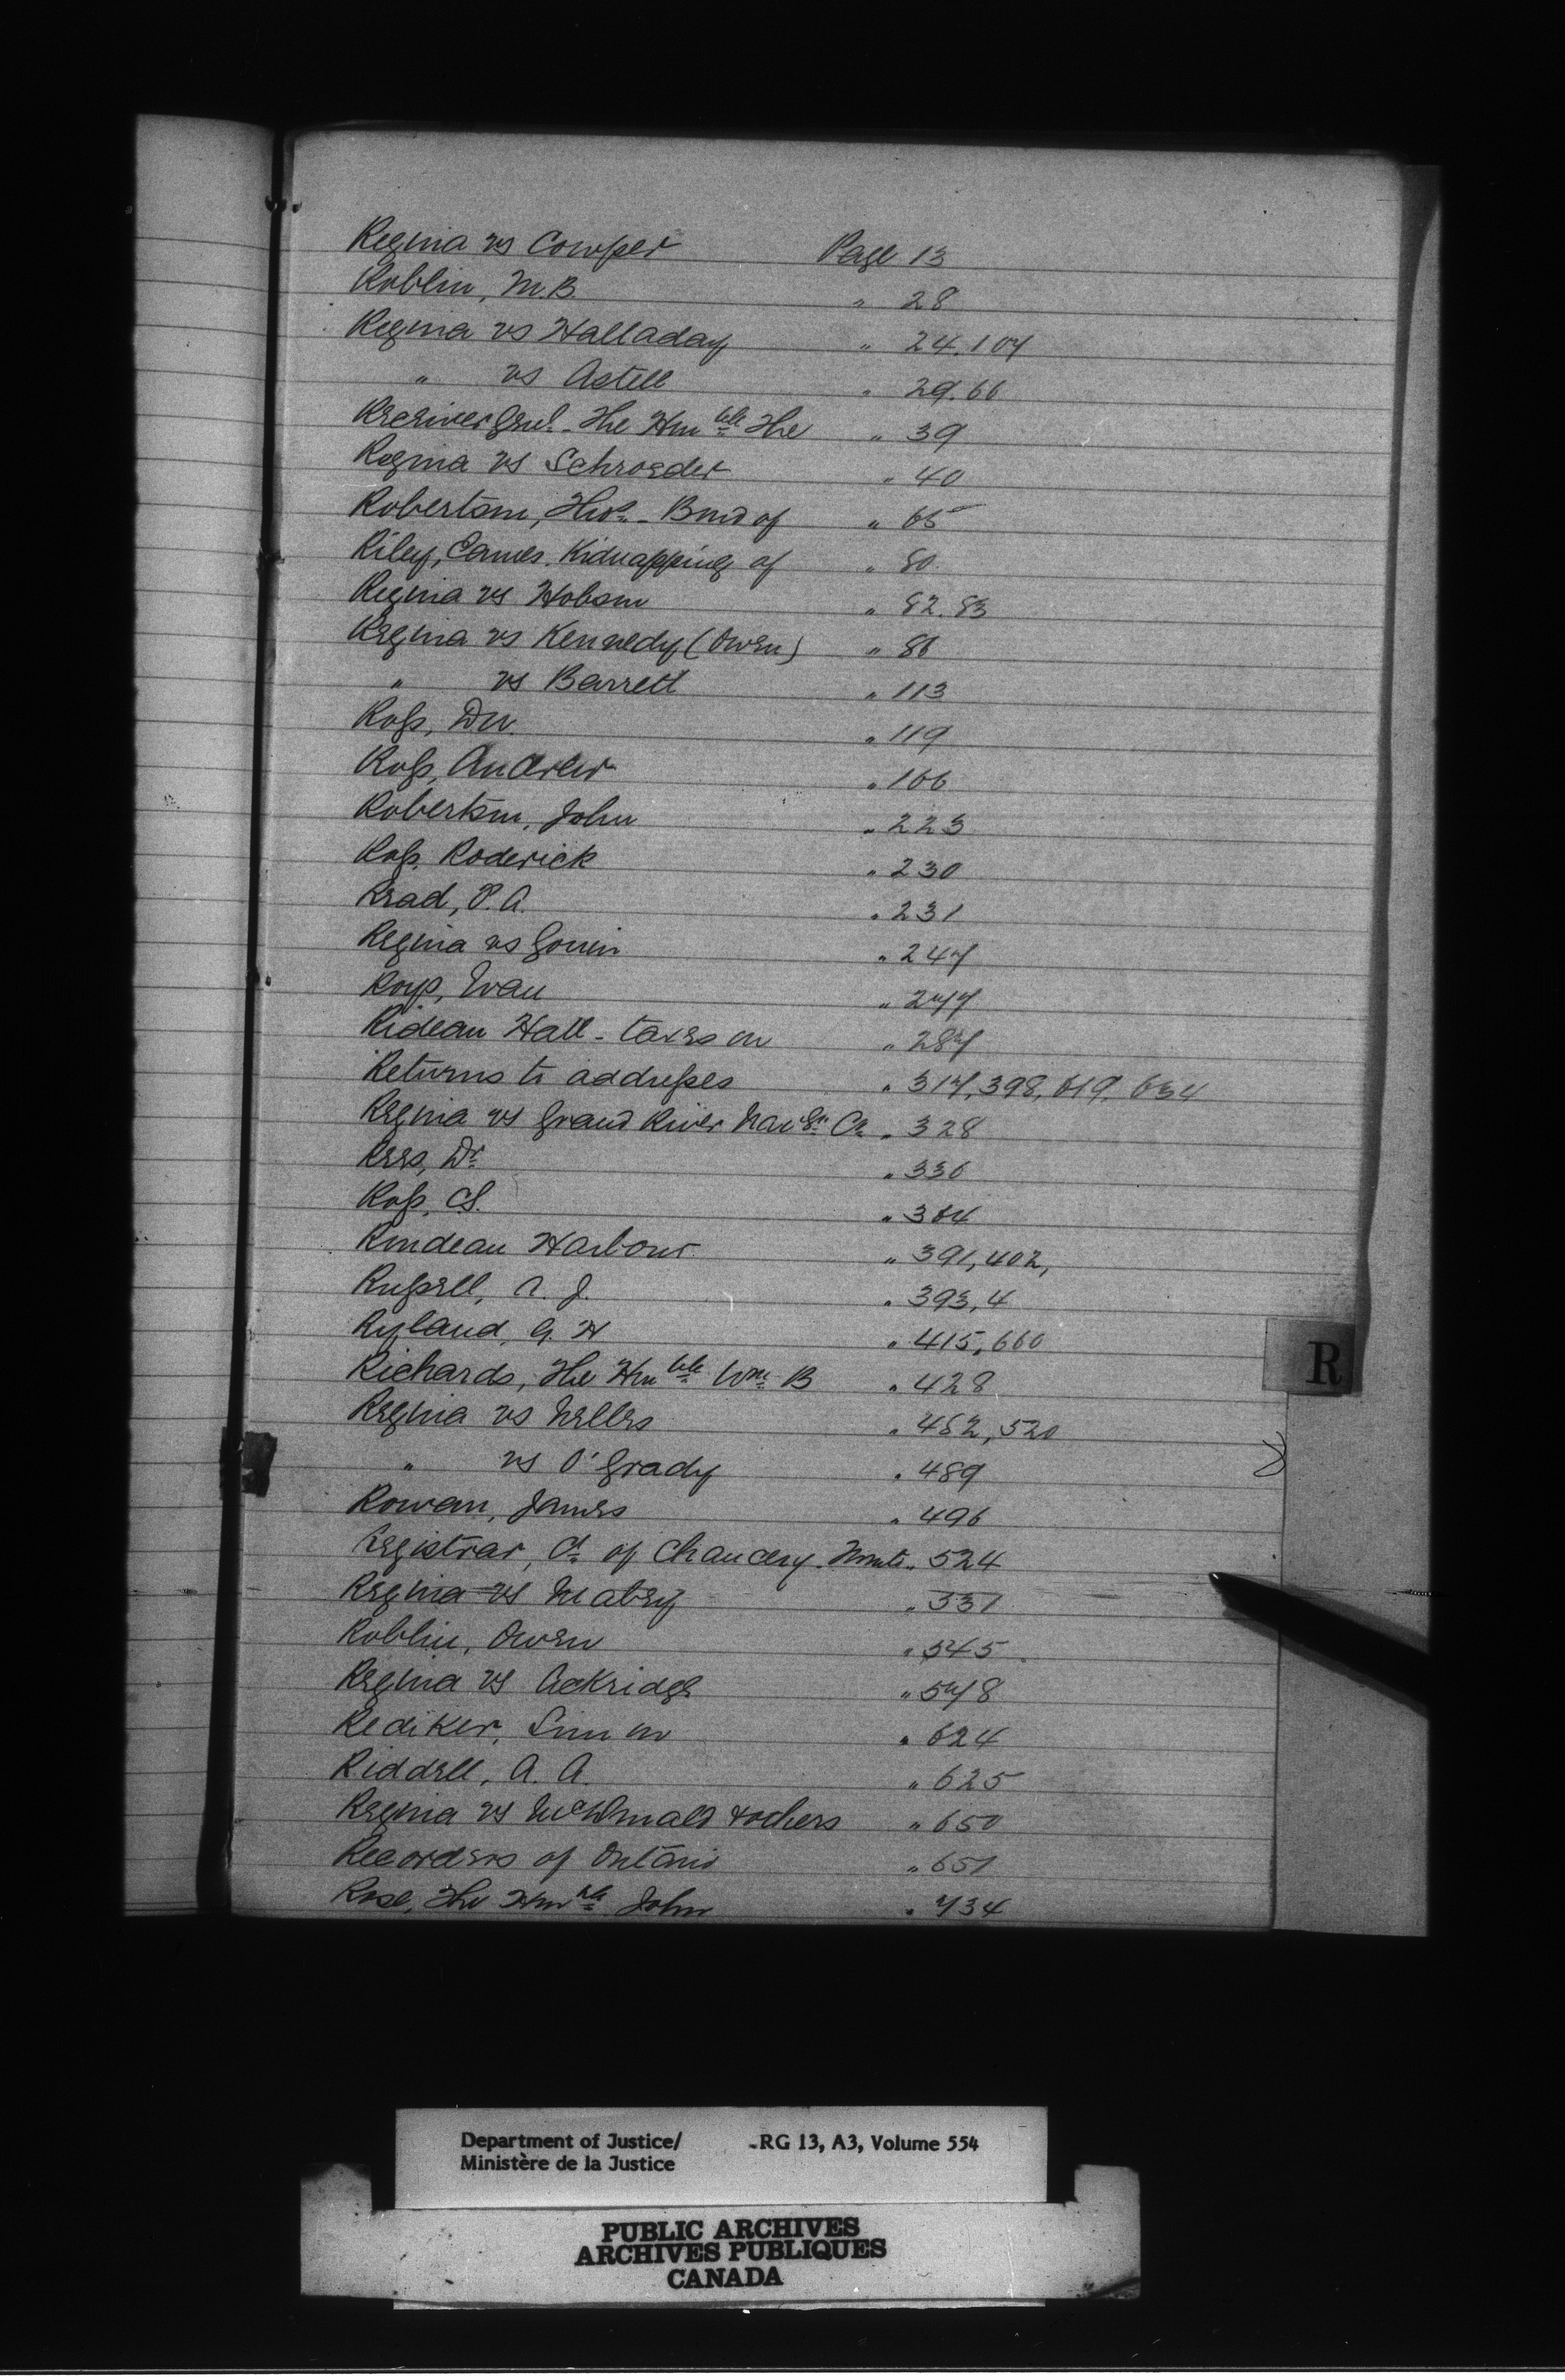 Regina vs Cowper Page 13
Roblin, M.B. " 28
Regina vs Halladay " 24.107
" vs Astell " 29.66
Receiver Genl. The Honble The " 39
Regina vs Schroeder " 40
Robertson, Thos. Bond of " 65
Riley, James. Kidnapping of " 80.
Regina vs Hobson " 82.83
Regina vs Kennedy (Owen) " 86
" vs Barrett " 113
Ross, Dr. " 119
Ross, Andrew " 166
Robertson, John " 223
Ross, Roderick " 230
Read, P.A. " 231
Regina vs Gouin " 247
Evan " 277
Rideau Hall - taxes on " 287
Returns to addresses " 317, 398, 619, 634
Regina vs Grand River Navgn Co " 328
Rees, Dr " 336
Ross, " 364
Rondeau Harbour " 391, 402,
Russell, A. J. " 393, 4
Ryland, G. H " 415, 660
Richards, The Honble Wm B " 428
Regina vs Nelles " 482, 520
" vs O'Grady " 489
Rowan, James " 496
Registrar, Ct of Chancery " 524
Regina vs Mabey " 531
Roblin, Owen " 545
Regina vs Ackridge " 578
Rediker, " 624
Riddell, A. A. " 625
Regina vs McDonald & others " 650
Recorders of Ontario " 651
Rose, The Honble John " 734
R
Department of Justice/ RG 13, A3, Volume 554
Ministère de la Justice
PUBLIC ARCHIVES
ARCHIVES PUBLIQUES
CANADA